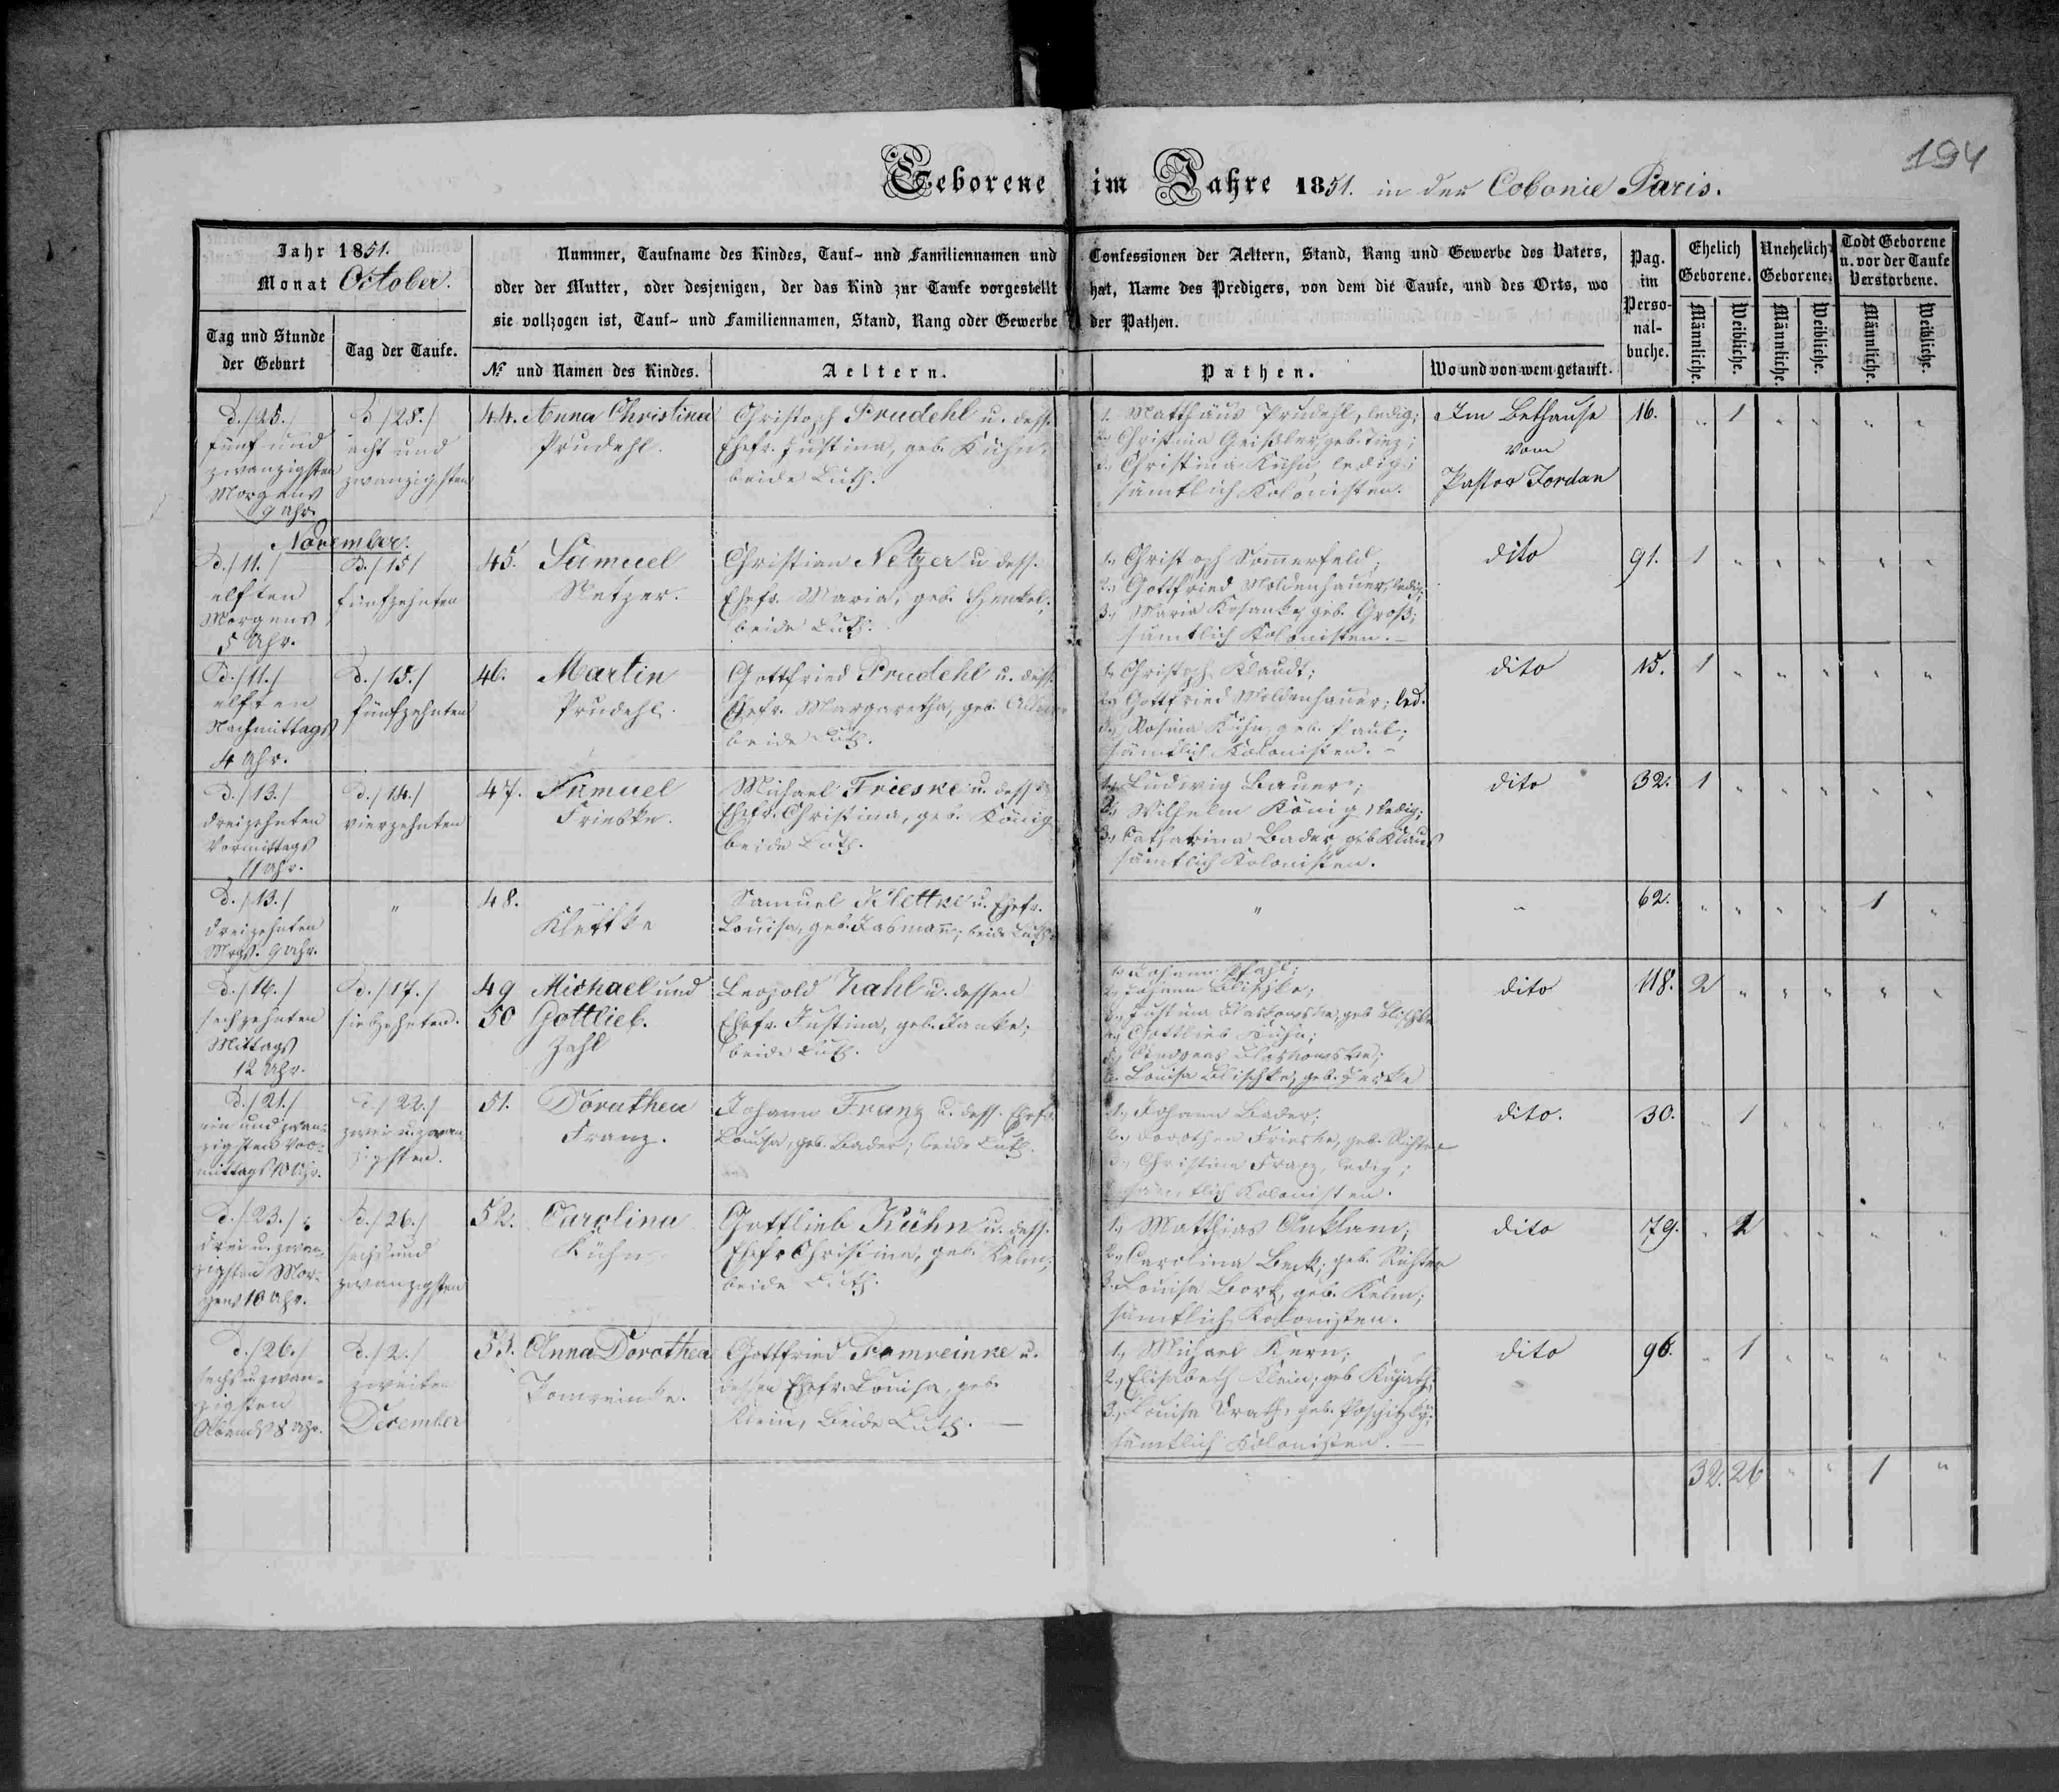 194
Geborene im Jahre 1851. in der Colonie Paris.
Jahr 1851.
Monat October.
Tag und Stunde der Geburt
Tag der Taufe.
Nummer, Taufname des Kindes, Tauf- und Familiennamen und Confessionen der Aeltern, Stand, Rang und Gewerbe des Vaters,
oder der Mutter, oder desjenigen, der das Kind zur Taufe vorgestellt hat, Name des Predigers, von dem die Taufe, und des Orts, wo
sie vollzogen ist, Tauf- und Familiennamen, Stand, Rang oder Gewerbe der Pathen.
№ und Namen des Kindes.
Aeltern.
Pathen.
Wo und von wem getauft.
Pag. im Perso-nal-buche.
Ehelich Geborene.
Unehelich Geborene.
Todt Geborene u. vor der Taufe Verstorbene.
Männliche. Weibliche. Männliche. Weibliche. Männliche. Weibliche.
d./25./
fünf und
zwanzigsten
Morgens
9 Uhr
d./28./
acht und
zwanzigsten
44. Anna Christina
Prudehl.
Christoph Prudehl u. dess.
Ehefr. Justina, geb. Kühn,
beide Luth.
1. Matthäus Prudehl, ledig;
2., Christina Geißler, geb. Tinz;
3., Christina Kühn, ledig;
sämtlich Kolonisten.
Im Bethause
vom
Pastor Jordan
16. " 1 " " " "
November.
d./11./
elften
Morgens
5 Uhr.
d./15/
fünfzehnten
45. Samuel
Netzer.
Christian Netzer u dess.
Ehefr. Maria, geb. Henkel;
beide Luth.
1., Christoph Sommerfeld;
2., Gottfried Moldenhauer, ledig;
3., Maria Kosanke, geb. Groß;
sämtlich Kolonisten.
dito
91. 1 " " " " "
d./11./
elften
Nachmittags
4 Uhr.
d./15./
fünfzehnten
46. Martin
Prudehl.
Gottfried Prudehl u. dess.
Ehefr. Margaretha, geb.
beide Luth.
1., Christoph Klaudt;
2., Gottfried Moldenhauer; led.
3., Rosina Kühn, geb. Paul;
sämtlich Kolonisten.
dito
15. 1 " " " " "
d./13./
dreizehnten
Vormittags
11 Uhr.
d./14./
vierzehnten
47. Samuel
Frieske.
Michael Frieske u. dess
Ehefr. Christina, geb. König
beide Luth.
1., Ludwig Bauer;
2., Wilhelm König, ledig;
3., Catharina Bader, geb Klaus
sämtlich Kolonisten.
dito
32. 1 " " " " "
d./13./
dreizehnten
Mrgs. 9 Uhr.
"
48.
Klettke
Samuel Klettke u. Ehefr.
Louisa, geb. Jasmann; beide Luth.
"
"
62. " " " " 1 "
d./16./
sechzehnten
Mittags
12 Uhr.
d./17./
siebzehnten.
49 Michael und
50 Gottlieb.
Zahl
Leopold Zahl u. dessen
Ehefr. Justina, geb. Janke;
beide Luth.
1., Johann Pfahl;
2., Johann Blischke;
4., Gottlieb Kühn;
6. Louisa Blischke, geb.
dito
118. 2 " " " " "
d./21./
ein und zwan-
zigsten Vor-
mittags 10 Uhr.
d./22./
zwei u. zwan
zigsten.
51. Dorothea
Franz.
Johann Franz u. dess. Ehefr.
Louisa, geb. Bader; beide Luth.
1., Johann Bader;
2., Dorothea Frieske, geb. Richter
3., Christina Franz, ledig;
sämtlich Kolonisten.
dito.
30. " 1 " " " "
d./23./
drei u. zwan-
zigsten Mor-
gens 10 Uhr.
d./26./
sechs und
zwanzigsten
52. Carolina
Kühn
Gottlieb Kühn u. dess.
Ehefr Christina, geb. Kelm;
beide Luth.
1., Matthias Anklam;
2., Carolina Beck, geb. Richter
3. Louisa Bork, geb. Kelm;
sämtlich Kolonisten.
dito
79. " 1 " " " "
d./26./
sechs u. zwan-
zigsten
Abends 8 Uhr.
d./2./
zweiten
December
53. Anna Dorothea
Pomreinke.
Gottfried Pomreinke u.
dessen Ehefr. Louisa, geb.
Klein, Beide Luth.
1., Michael Kern;
2., Elisabeth Klein, geb Kujath;
3., Louisa Drath, geb.
sämtlich Kolonisten.
dito
96. " 1 " " " "
32. 26 " " 1 "